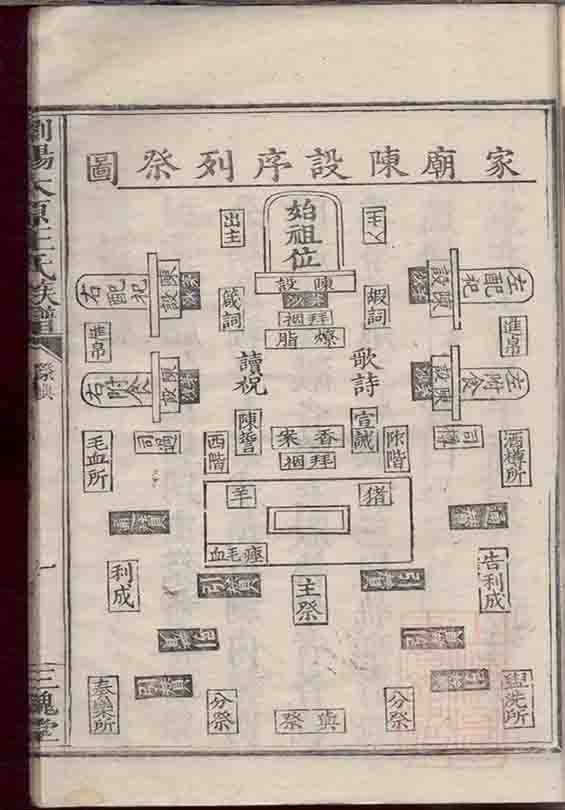 家廟陳設序列祭圖
始祖位
出主
陳設
茅沙
拜裀
燎脂
嘏詞
箴詞
歌詩
讀祝
左配祝
陳設
右配祝
陳設
進帛
進帛
左附食
陳設
右附食
陳設
宣誡
陳誓
香案
拜裀
阼階
西階
司樽
司過
酒樽所
毛血所
豬
羊
瘞毛血
告利成
利成
引贊
引贊
主祭
盥洗所
奏樂所
分祭
分祭
與祭
瀏陽太原王氏族譜
祭典
三槐堂